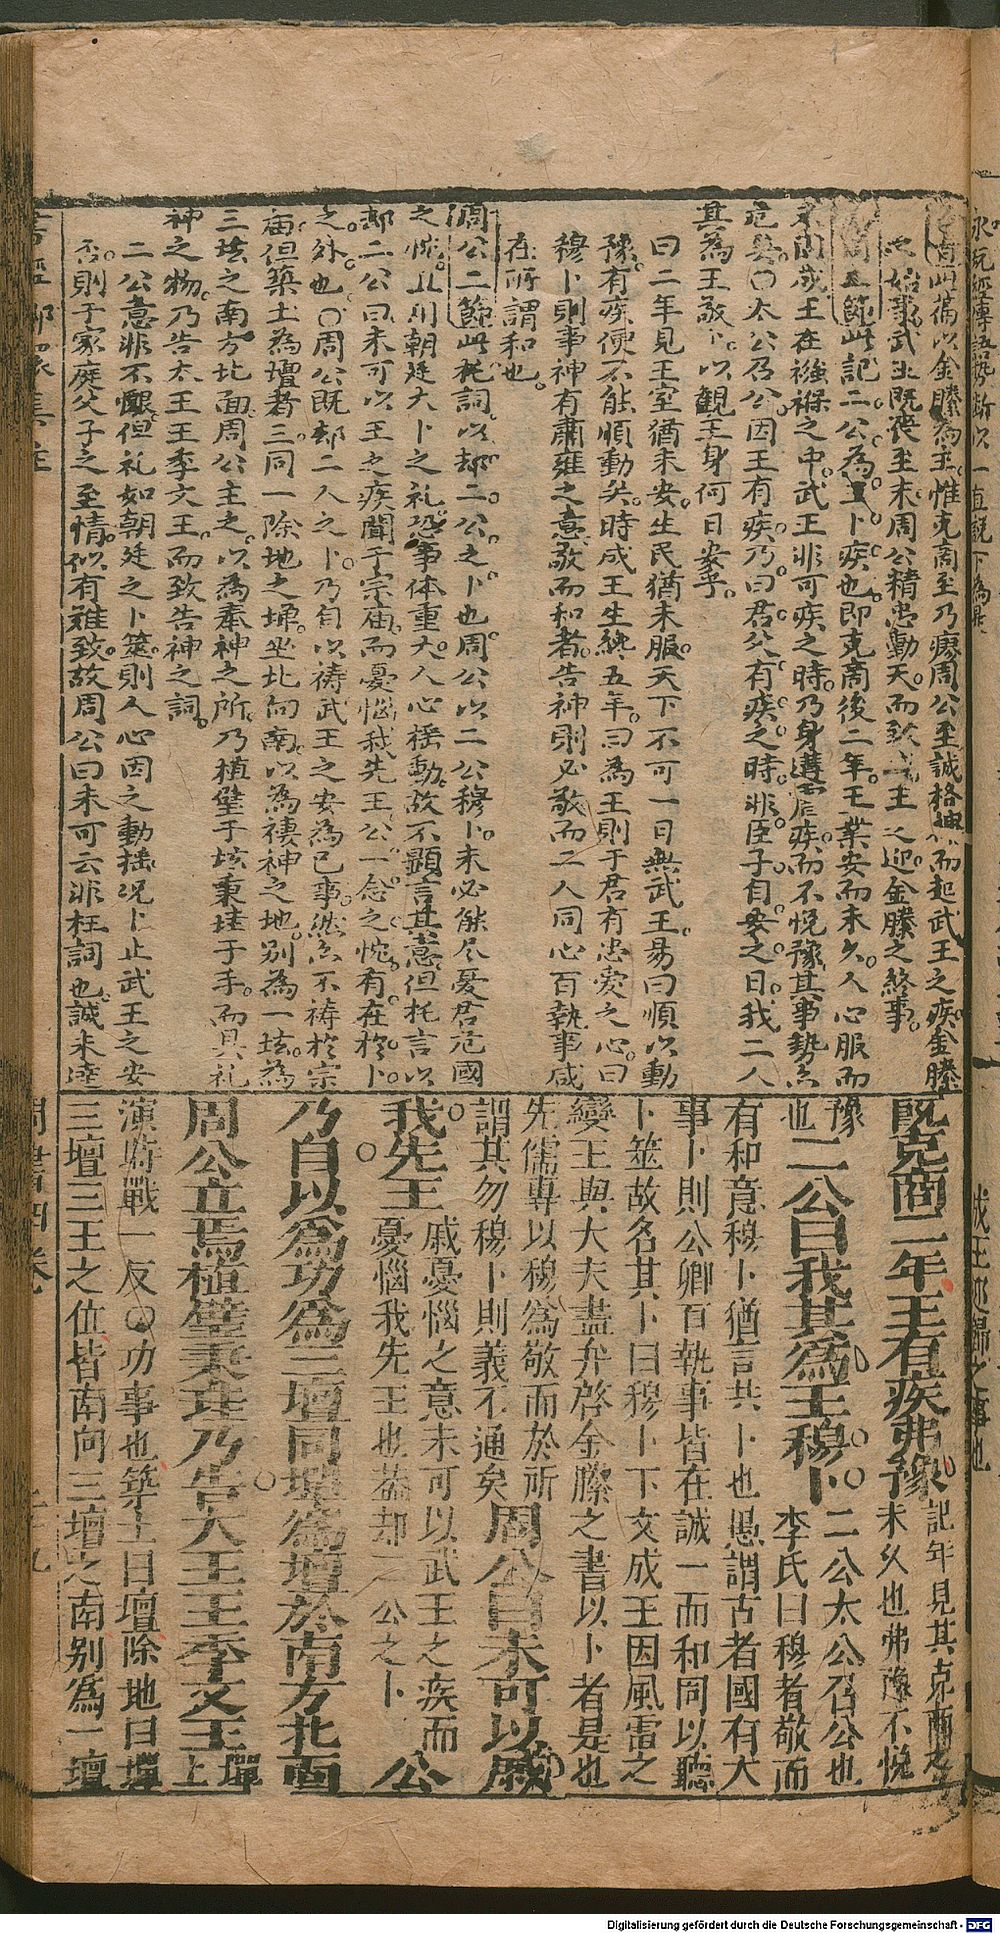 此篇以金縢為主惟克商至乃瘳周公至誠格神而起武王之疾金縢
之始事武王既喪至末周公精忠動天而致成王之迎金縢之終事
五節此記二公為王卜疾也即克商後二年王業安而未久人心服而
未固成王在襁褓之中武王非可疾之時乃身遘危疾而不悅豫其事勢亦
危矣○太公召公因王有疾乃曰君父有疾之時非臣子自安之日我二人
其為王敬卜以觀王身何日安乎
曰二年見王室猶未安生民猶未服天下不可一日無武王易曰順以動
豫有疾便不能順動矣時成王生終五年曰為王則于君有忠愛之心曰
穆卜則事神有肅雍之意敬而和者告神則必敬而二人同心百執事咸
在所謂和也
周公二節此托詞以却二公之卜也周公以二公穆卜未必能尽憂君危國
之忱且用朝廷大卜之礼恐事体重大人心搖動故不顯言其意但托言以
却二公曰未可以王之疾聞于宗庙而憂惱我先王公一念之忱有在於卜
之外也○周公既却二人之卜乃自以祷武王之安為己事然亦不祷於宗
庙但築土為壇者三同一除地之墠坐北向南以為棲神之地別為一坛為
三坛之南方北面周公主之以為奉神之所乃植璧于坛秉珪于手而具礼
神之物乃告太王王季文王而致告神之詞
二公意非不懇但礼如朝廷之卜筮則人心因之動搖况卜止武王之安
否則于家庭父子之至情似有难致故周公曰未可云非枉詞也誠未達
既克商二年王有疾弗豫記年見其克商之
未久也弗豫不悅
豫也二公曰我其為王穆卜二公太公召公也
李氏曰穆者敬而
有和意穆卜猶言共卜也愚謂古者國有大
事卜則公卿百執事皆在誠一而和同以聽
卜筮故名其卜曰穆卜下文成王因風雷之
變王與大夫盡弁啓金縢之書以卜者是也
先儒專以穆為敬而於所
謂其勿穆卜則義不通矣周公曰未可以戚
我先王戚憂惱之意未可以武王之疾而
憂惱我先王也蓋却二公之卜公
乃自以為功為三壇同墠為壇於南方北面
周公立焉植璧秉珪乃告太王王季文王墠上
演時戰一反○功事也築土曰壇除地曰墠
三壇三王之位皆南向三壇之南別為一壇
Digitalisierung gefördert durch die Deutsche Forschungsgemeinschaft - DFG